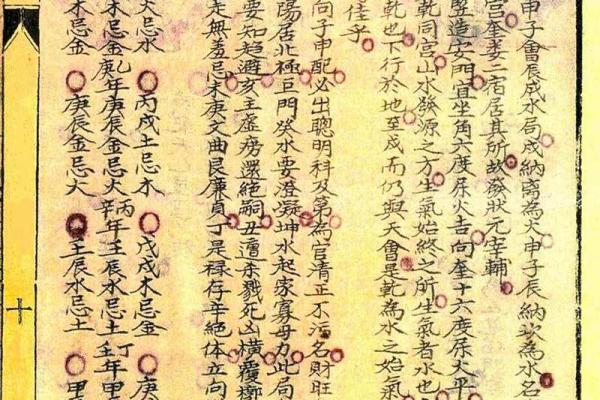 申子會辰成水局戌納為火申子辰納欬為水名
宮奎婁二宿居其所故發狀元宰輔
竪造安門宜坐角六度尿火吉向奎十六度尿大平
乾同宮山水發源之方生氣始終之所生氣者水也
乾也下行於地至戌而仍與天會是乾為水之始氣
佳乎
向子申配必出聰明科及第為官清正不污名財旺
陽居北極巨門癸水要澄凝坤水起家寡母力此局
要知趋避亥主虛癆還絕嗣丑遭杀戮死凶橫覆槨
無羞忌未庚文曲艮廉貞丁是禄存辛絕体立向
火忌水 丙戌土忌木 戊戌木忌金 庚
木忌金 乙庚年庚辰金忌火 丙辛年壬辰水忌土 丁壬年甲
木忌金 庚辰金忌火 壬辰水忌土 甲
十